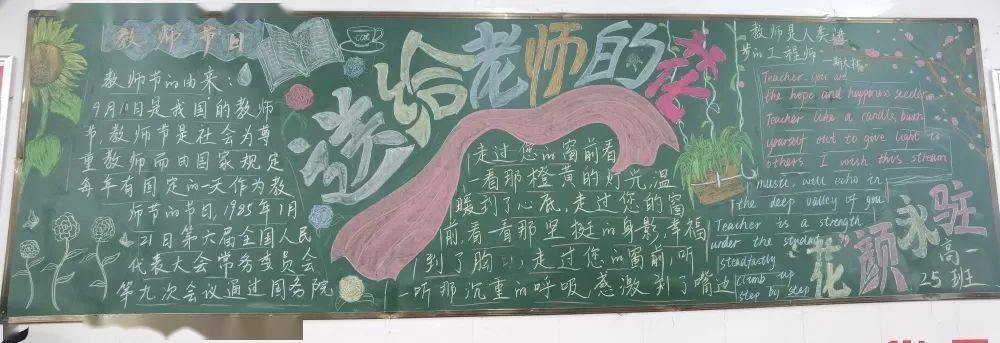 教师节日
教师节的由来:
9月10日是我国的教师
节,教师节是社会为尊
重教师而由国家规定
每年有固定的一天作为教
师节的节日,1985年1月
21日第六届全国人民
代表大会常务委员会
第九次会议通过国务院
送给老师的
走过您的窗前看
一看那橙黄的灯光,温
暖到了心底,走过您的窗
前,看一看那坚挺的身影,幸福
到了胸口,走过您的窗前,听
一听那沉重的呼吸感激到了嘴边
教师是人类进
步的工程师
Teacher, you are
the hope and happiness seeder
Teacher like a candle, burn
yourself out to give light to
others. I wish this stream
music, will echo in
the deep valley of you
Teacher is a strength
under the student
steadfastly
climb up
step by step
"花"颜永驻
高一
25班